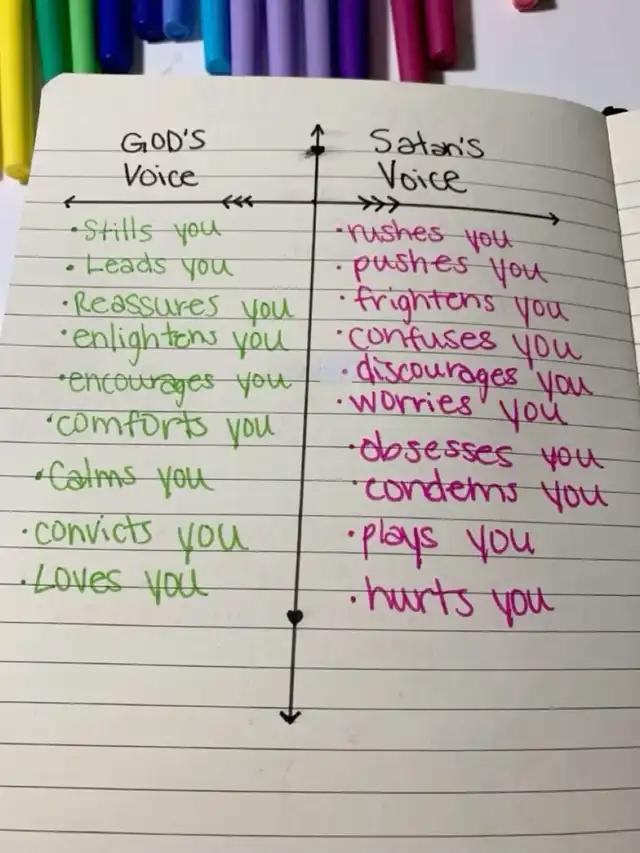 GOD'S
Voice
• Stills you
• Leads you
• Reassures you
• enlightens you
• encourages you
• comforts you
• Calms you
• convicts you
• Loves you
Satan's
Voice
• rushes you
• pushes you
• frightens you
• confuses you
• discourages you
• worries you
• obsesses you
• condems you
• plays you
• hurts you